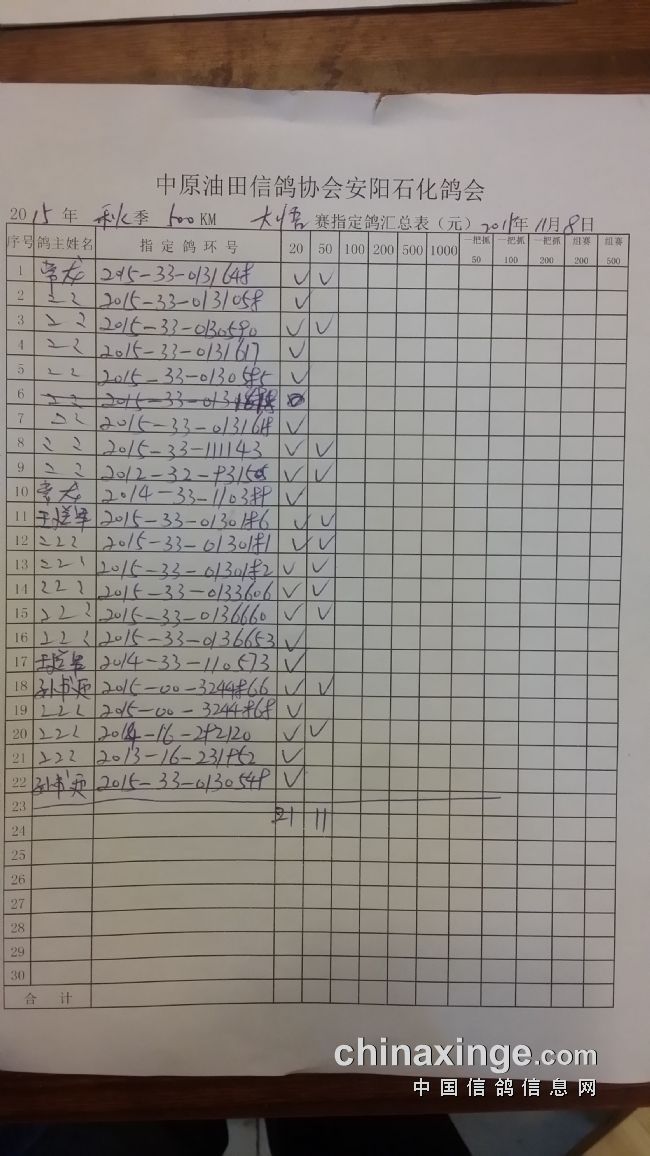 中原油田信鸽协会安阳石化鸽会
2015年 秋季 500KM 大悟 赛指定鸽汇总表（元）2015年11月8日
序号 鸽主姓名 指定鸽环号 20 50 100 200 500 1000 一把抓50 一把抓100 一把抓200 组赛200 组赛500
1 常龙 2015-33-0131648 ✓ ✓
2 〃 2015-33-0131058 ✓
3 〃 2015-33-0130590 ✓ ✓
4 〃 2015-33-0131617 ✓
5 〃 2015-33-0130585 ✓
6
7 〃 2015-33-0131618 ✓
8 〃 2015-33-111143 ✓ ✓
9 〃 ✓ ✓
10 常龙 2014-33-110389 ✓
11 2015-33-0130186 ✓ ✓
12 2015-33-0130181 ✓ ✓
13 2015-33-0130182 ✓ ✓
14 2015-33-0133606 ✓ ✓
15 2015-33-0136660 ✓ ✓
16 2015-33-0136653 ✓
17 2014-33-110573 ✓
18 2015-00-3244866 ✓ ✓
19 2015-00-3244868 ✓
20 ✓ ✓
21 ✓
22 2015-33-0130548 ✓
23
24 21 11
25
26
27
28
29
30
合计
chinaxinge.com
中国信鸽信息网